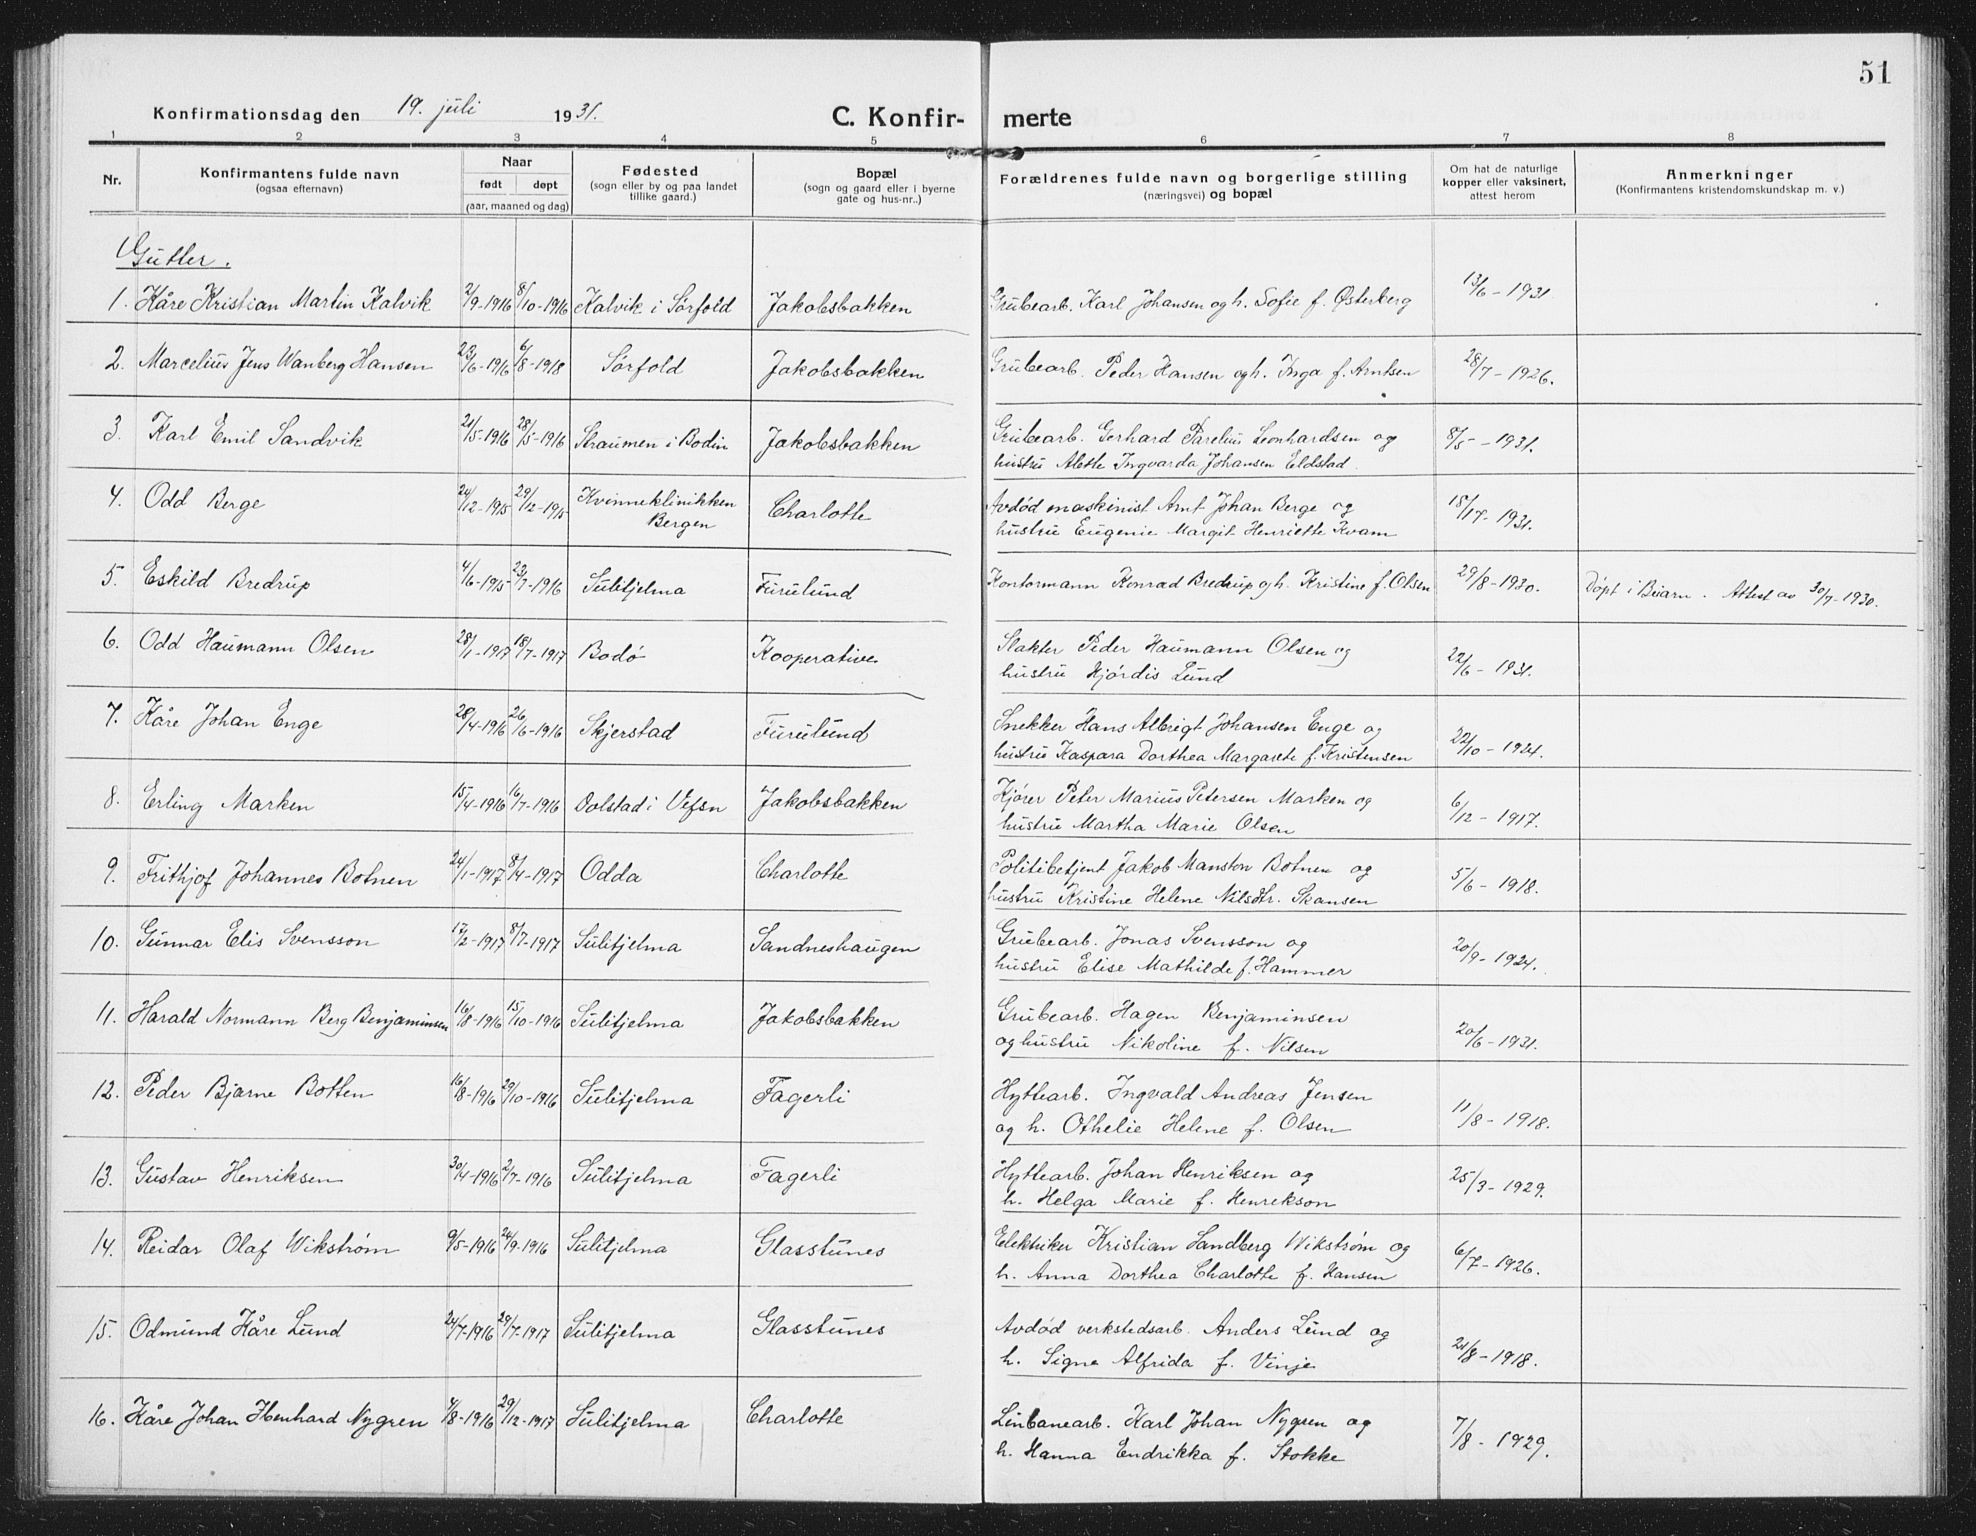 51
Konfirmationsdag den 19. juli 1931.
C. Konfir- merte
1 2 3 4 5 6 7 8
Nr.
Konfirmantens fulde navn
(ogsaa efternavn)
Naar
født døpt
(aar, maaned og dag)
Fødested
(sogn eller by og paa landet
tillike gaard.)
Bopæl
(sogn og gaard eller i byerne
gate og hus-nr..)
Forældrenes fulde navn og borgerlige stilling
(næringsvei) og bopæl
Om hat de naturlige
kopper eller vaksinert,
attest herom
Anmerkninger
(Konfirmantens kristendomskundskap m. v.)
Gutter.
1. Kåre Kristian Martin Kalvik 2/9-1916 8/10-1916 Kalvik i Sørfold Jakobsbakken Grubearb. Karl Johansen og h. Sofie f. Østerberg 13/6-1931
2. Marcelius Jens Wanberg Hansen 23/6-1916 6/8-1918 Sørfold Jakobsbakken Grubearb. Peder Hansen og h. Inga f. Arntsen 28/7-1926.
3. Karl Emil Sandvik 21/5-1916 28/5-1916 Straumen i Bodin Jakobsbakken Grubearb. Gerhard Parelius Leonhardsen og 8/5-1931.
hustru Alette Ingvarda Johansen Eldstad.
4. Odd Berge 24/12-1915 29/12-1915 Kvinneklinikken Charlotte Avdød maskinist Arnt Johan Berge og
Bergen hustru Eugenie Margit Henriette Kvam
5. Eskild Bredrup 4/6-1915 23/7-1916 Sulitjelma Furulund Kontormann Konrad Bredrup og h. Kristine f. Olsen 29/8-1930. Døpt i Beiarn. Attest av 30/7-1930.
6. Odd Haumann Olsen 28/1-1917 18/7-1917 Bodø Kooperative. Slakter Peder Haumann Olsen og 22/6-1931.
hustru Hjørdis Lund
7. Kåre Johan Enge 28/4-1916 26/6-1916 Skjerstad Furulund Snekker Hans Albrigt Johansen Enge og 22/10-1924.
hustru Kaspara Dorthea Margarete f. Kristensen
8. Erling Marken 15/4-1916 16/7-1916 Dolstad i Vefsn Jakobsbakken Kjører Peter Marius Petersen Marken og 6/12-1917.
hustru Martha Marie Olsen
9. Frithjof Johannes Botnen 24/1-1917 8/4-1917 Odda Charlotte Politibetjent Jakob Manston Botnen og 5/6-1918.
hustru Kristine Helene Nilsdtr. Skansen
10. Gunnar Elis Svensson 17/2-1917 8/7-1917 Sulitjelma Sandneshaugen Grubearb. Jonas Svensson og 20/9-1924.
hustru Elise Mathilde f. Hammer
11. Harald Normann Berg Benjaminsen 16/8-1916 15/10-1916 Sulitjelma Jakobsbakken Grubearb. Hagen Benjaminsen 20/6-1931.
og hustru Nikoline f. Nilsen
12. Peder Bjarne Botten 16/8-1916 29/10-1916 Sulitjelma Fagerli Hyttearb. Ingvald Andreas Jensen 11/8-1918.
og h. Othelie Helene f. Olsen
13. Gustav Henriksen 30/4-1916 2/7-1916 Sulitjelma Fagerli Hyttearb. Johan Henriksen og 25/3-1929.
h. Helga Marie f. Henrekson
14. Reidar Olaf Wikstrøm 9/5-1916 24/9-1916 Sulitjelma Glasstunes Elektriker Kristian Sandberg Wikstrøm og 6/7-1926.
h. Anna Dorthea Charlotte f. Hansen
15. Odmund Kåre Lund 24/7-1916 29/7-1917 Sulitjelma Glasstunes Avdød verkstedsarb. Anders Lund og 21/8-1918.
h. Signe Alfrida f. Vinje
16. Kåre Johan Ibenhard Nygren 4/8-1916 29/12-1917 Sulitjelma Charlotte Linbanearb. Karl Johan Nygren og 7/8-1929.
h. Hanna Endrikka f. Stokke